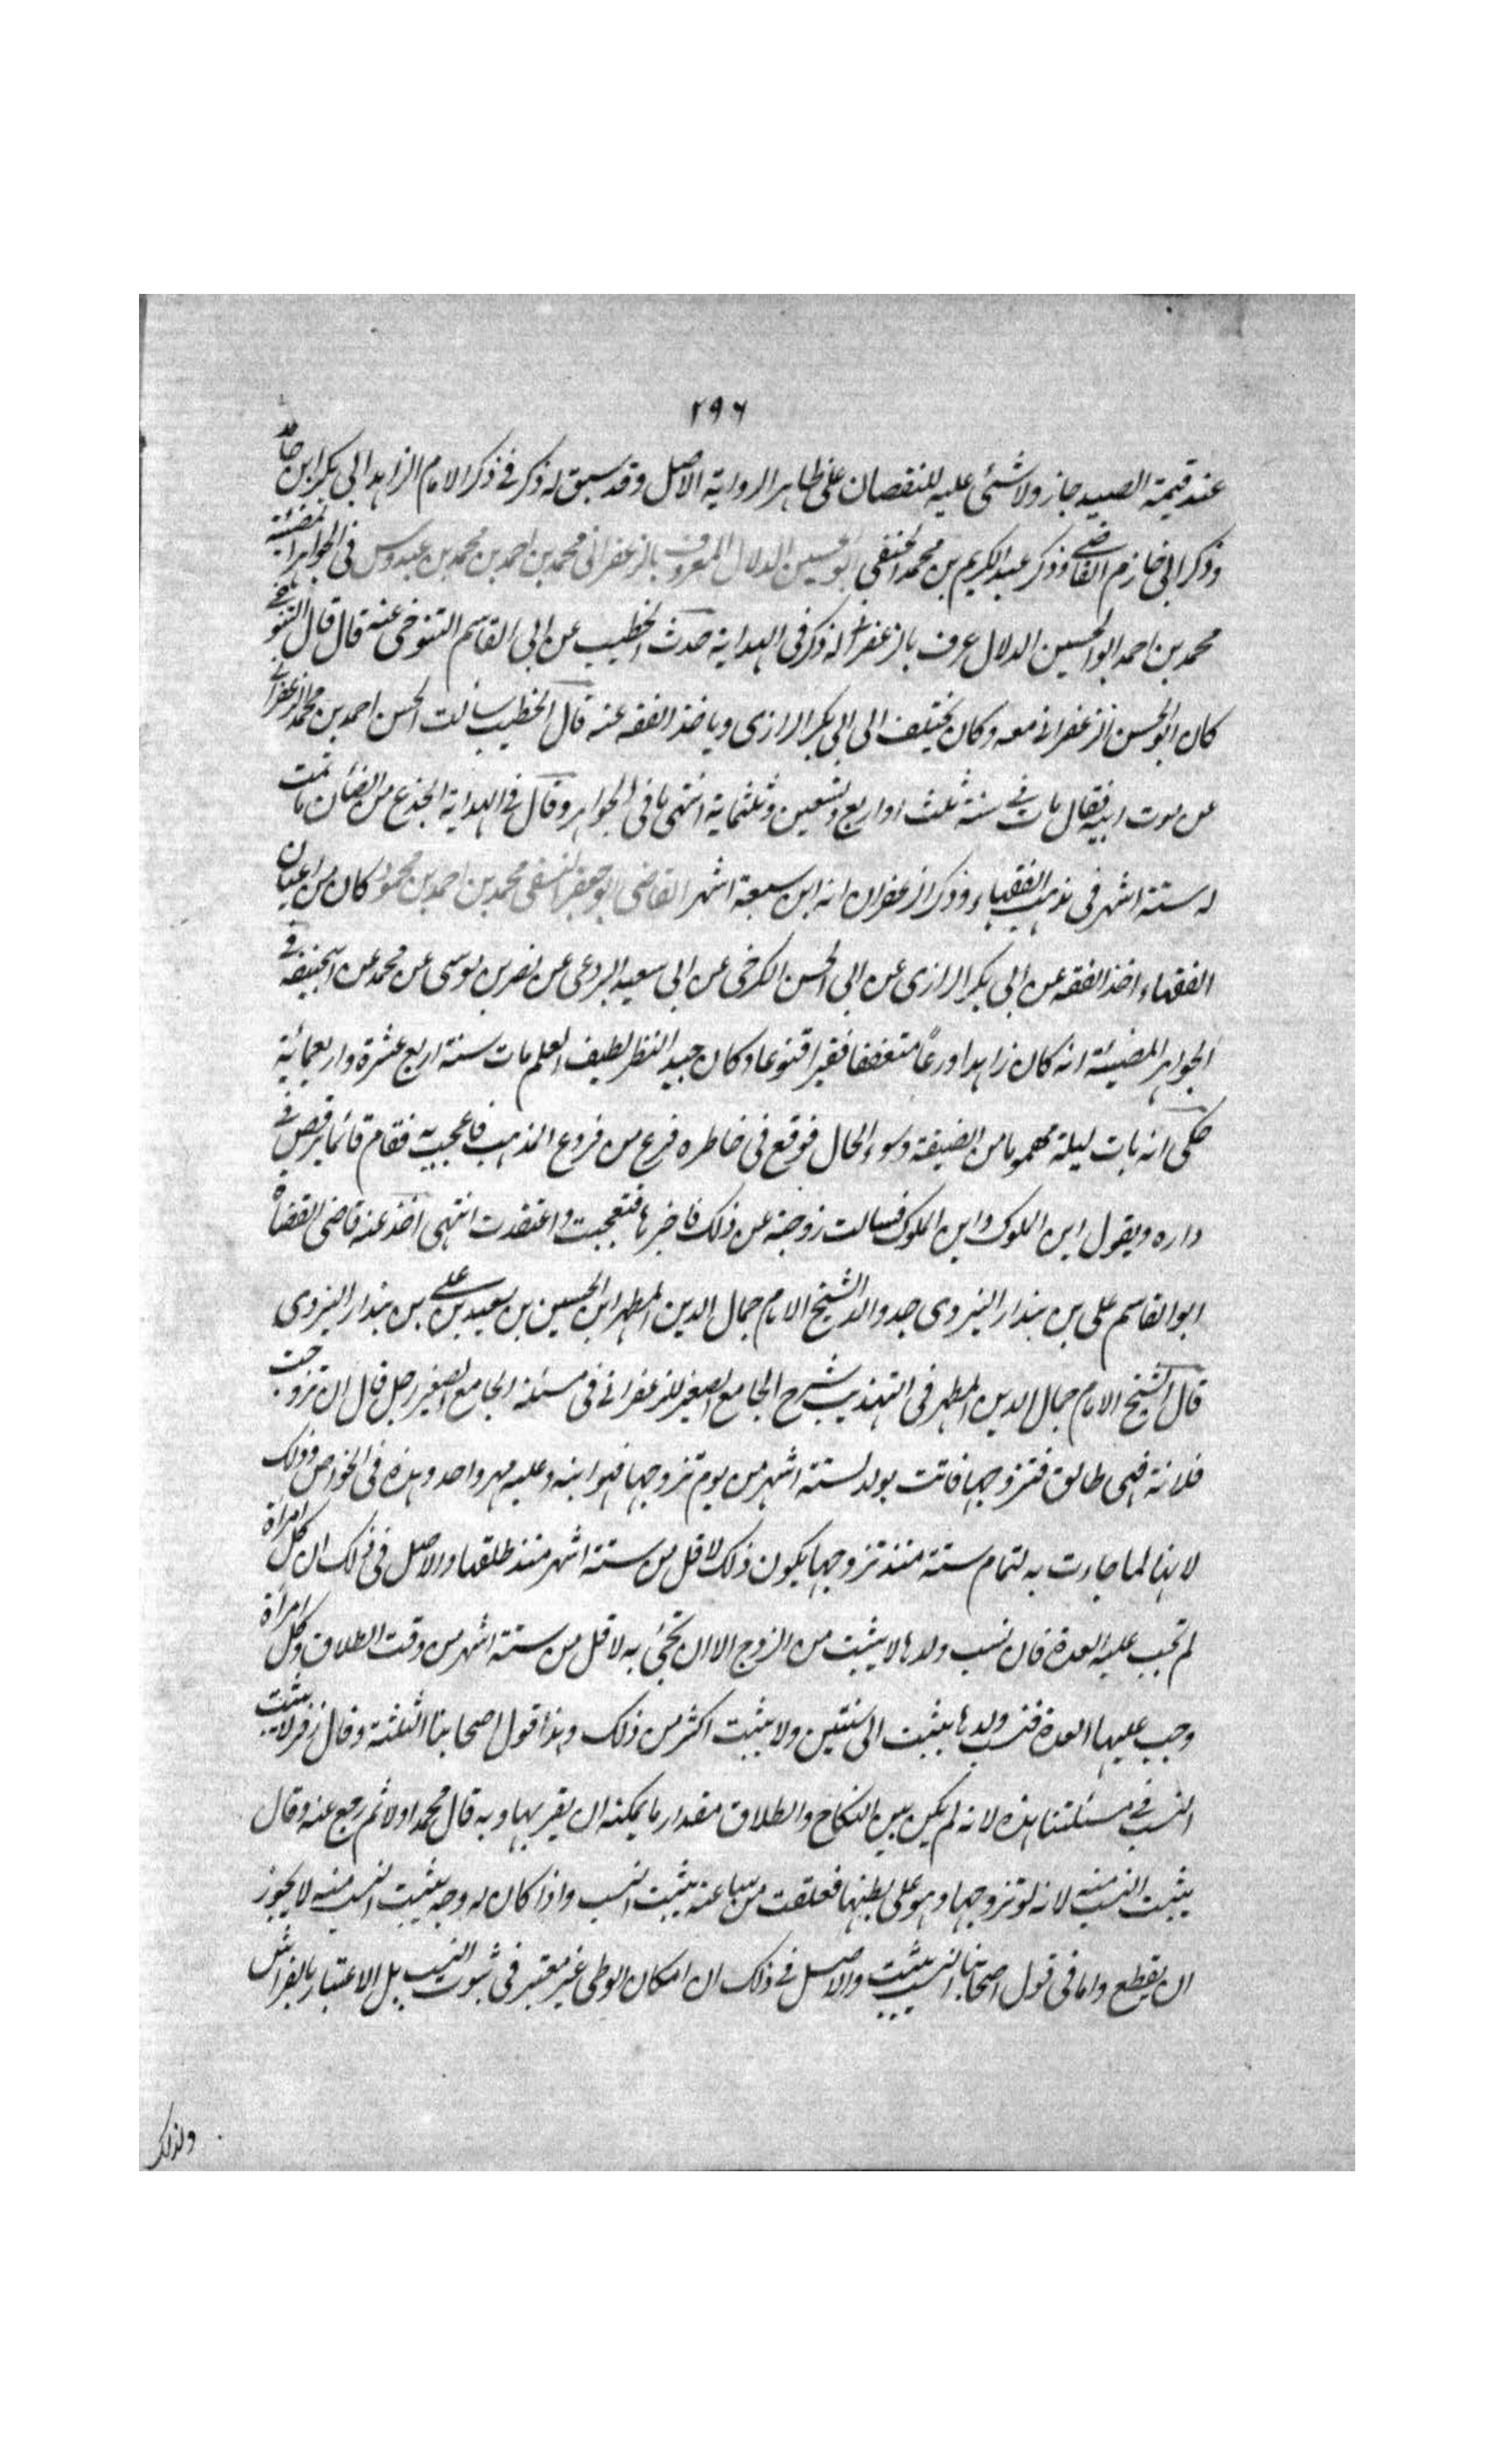 ٢٩٦
عند قيمة الصيد جاز ولا شئى عليه للنقصان على ظاهر الرواية الاصل وقد سبق له ذكر فى ذكر الامام الزاهد ابى بكر ابن حامد
وذكر ابى خازم القاضى وذكر عبد الكريم بن محمد الحنفى ابو الحسين الدلال المعروف بالزعفرانى محمد بن احمد بن محمد بن عبدوس فى الجواهر المضئية
محمد بن احمد ابو الحسين الدلال عرف بالزعفرانى له ذكر فى الهداية حدث الخطيب عن ابى القاسم التنوخى عنه قال قال التنوخى
كان ابو الحسن الزعفرانى معه وكان يختلف الى ابى بكر الرازى وياخذ الفقه عنه قال الخطيب سالت الحسن احمد بن محمد الزعفرانى
عن موت ابيه فقال مات فى سنة ثلث او اربع وتسعين وثلثماية انتهى ما فى الجواهر وقال فى الهداية الجذع من الضان ما تمت
له ستة اشهر فى مذهب الفقهاء وذكر الزعفرانى انه ابن سبعة اشهر القاضى ابو جعفر النسفى محمد بن احمد بن محمود كان من اعيان
الفقهاء اخذ الفقه عن ابى بكر الرازى عن ابى الحسن الكرخى عن ابى سعيد البردعى عن نصر بن موسى عن محمد عن ابيحنيفة فى
الجواهر المضيئة انه كان زاهدا ورعاً متعففا فقيرا قنوعا وكان جيد النظر لطيف العلم مات سنة اربع عشرة واربعمائية
حكى انه بات ليلة مهموما من الضيقة وسوء الحال فوقع فى خاطره فرع من فروع المذهب فاعجب به فقام قائما يرقص فى
داره ويقول اين الملوك واين الملوك فسالت زوجته عن ذلك فاخبرها فتعجبت واعتقدت انتهى اخذ عنه قاضى القضاة
ابو القاسم على بن بندار اليزدى جد والد الشيخ الامام جمال الدين المطهر ابن الحسين بن سعيد بن على بن بندار اليزدى
قال الشيخ الامام جمال الدين المطهر فى التهذيب شرح الجامع الصغير للزعفرانى فى مسئلة الجامع الصغير رجل قال ان تزوجت
فلانة فهى طالق فتزوجها فاتت بولد لستة اشهر من يوم تزوجها فهو ابنه وعليه مهر واحد وهذه فى الخواص وذلك
لانها لما جاءت به لتمام ستة منذ تزوجها يكون ذلك لاقل من ستة اشهر منذ طلقها والاصل فى ذلك ان كل امراة
لم تجب عليه العدة فان نسب ولدها لا يثبت من الزوج الا ان تجئ به لاقل من ستة اشهر من وقت الطلاق وكل امراة
وجب عليها العدة فنسب ولدها يثبت الى سنتين ولا يثبت اكثر من ذلك وهذا قول اصحابنا الثلثة وقال زفر لا يثبت
النسب فى مسئلتنا هذه لانه لم يكن بين النكاح والطلاق مقدار ما يمكنه ان يقربها وبه قال محمد اولا ثم رجع عنه وقال
يثبت النسب منه لانه لو تزوجها وهو على بطنها فعلقت من ساعته يثبت النسب واذا كان له وجه يثبت النسب منه لا يجوز
ان يقطع واما فى قول اصحابنا النسب يثبت والاصل فى ذلك ان امكان الوطى غير معتبر فى ثبوت النسب بل الاعتبار بالفراش
ولذلك